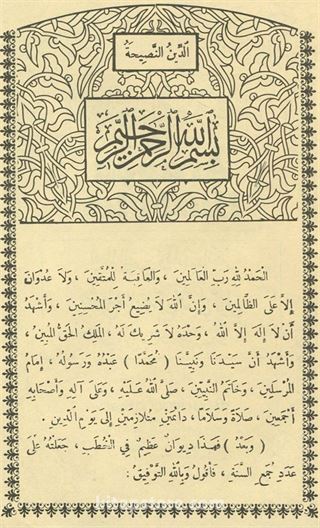 الدِّينُ النَّصِيحَةُ
بسم الله الرحمن الرحيم
الْحَمْدُ لِلّٰهِ رَبِّ الْعَالَمِينَ ، وَالْعَاقِبَةُ لِلْمُتَّقِينَ ، وَلَا عُدْوَانَ
إِلَّا عَلَى الظَّالِمِينَ ، وَإِنَّ اللهَ لَا يُضِيعُ أَجْرَ الْمُحْسِنِينَ ، وَأَشْهَدُ
أَنْ لَا إِلٰهَ إِلَّا اللهُ ، وَحْدَهُ لَا شَرِيكَ لَهُ ، الْمَلِكُ الْحَقُّ الْمُبِينُ ،
وَأَشْهَدُ أَنَّ سَيِّدَنَا وَنَبِيَّنَا ( مُحَمَّدًا ) عَبْدُهُ وَرَسُولُهُ ، إِمَامُ
الْمُرْسَلِينَ ، وَخَاتَمُ النَّبِيِّينَ ، صَلَّى اللهُ عَلَيْهِ ، وَعَلَى آلِهِ وَأَصْحَابِهِ
أَجْمَعِينَ ، صَلَاةً وَسَلَامًا ، دَائِمَيْنِ مُتَلَازِمَيْنِ إِلَى يَوْمِ الدِّينِ .
( وَبَعْدُ ) فَهٰذَا دِيوَانٌ عَظِيمٌ فِي الْخُطَبِ ، جَعَلْتُهُ عَلَى
عَدَدِ جُمَعِ السَّنَةِ ، فَأَقُولُ وَبِاللهِ التَّوْفِيقُ :